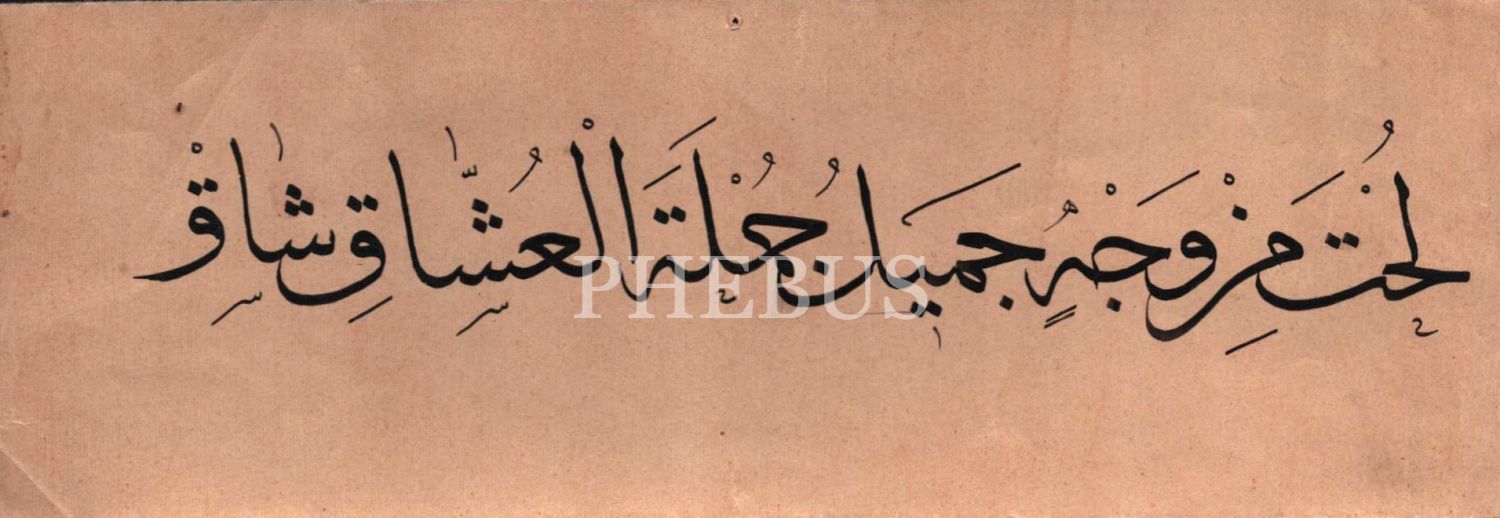 لُحْتَ مِنْ وَجْهٍ جَمِيلُ جُمْلَةَ الْعُشَّاقِ شَاقْ
PHEBUS